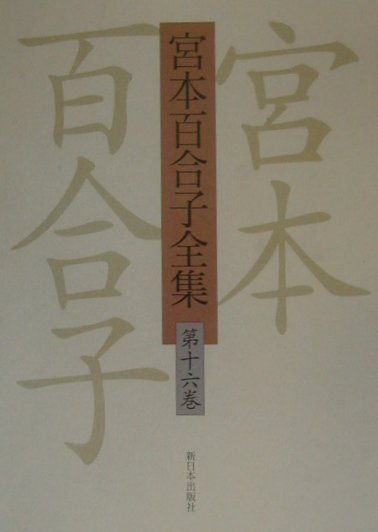 宮本
百合子
宮本百合子全集
第十六巻
新日本出版社